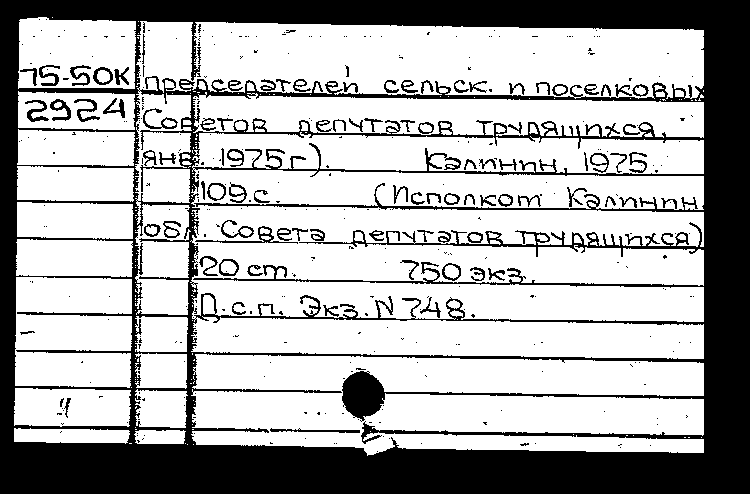 75-50К председателей сельск. и поселковых
2924 Советов депутатов трудящихся,
янв. 1975г). Калинин, 1975.
109.с. (Исполком Калинин.
обл. Совета депутатов трудящихся)
20 cm. 750 экз.
Д.с.п. Экз. N 748.